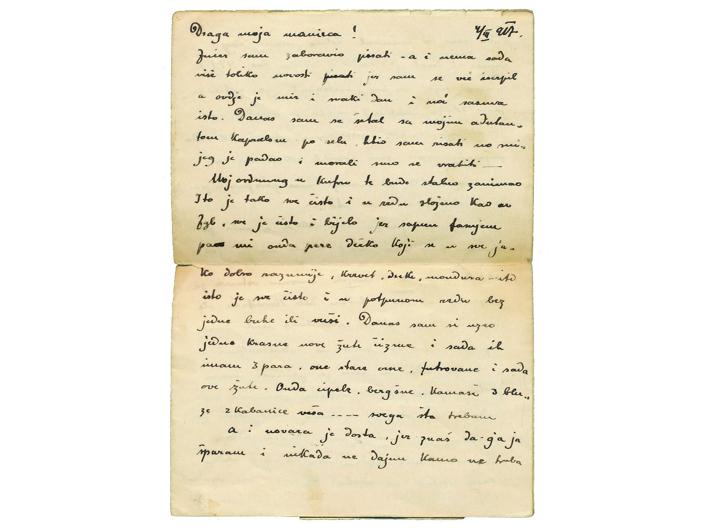 Draga moja mamica!
Jučer sam zaboravio pisati - a i nema sada
više toliko novosti pisati jer sam se već
a ovdje je mir i svaki dan i noć sasma
isto. Danas sam se šetal sa mojim adutan-
tom Kapralom po selu, htio sam risati no sni-
jeg je padao i morali smo se vratiti —
Moj ordnung u Kufru te bude stalno zanimao
Ito je tako sve čisto i u redu složeno Kao
sve je čisto i bijelo jer sapun
pa mi onda pere dečko Koji se u sve ja-
Ko dobro razumije, Krevet, deke, mondura
isto je sve čisto i u potpunom redu bez
jedne buhe ili uši. Danas sam si uzeo
jedne Krasne nove žute čizme i sada ih
imam 3 para, one stare crne, futrovane i sada
ove žute. Onda cipele, bergšue, Kamaše 3 blu-
ze 2 Kabanice veša ---- svega što trebam
a i novaca je dosta, jer znaš da ga ja
šparam i nikada ne dajem Kamo ne treba